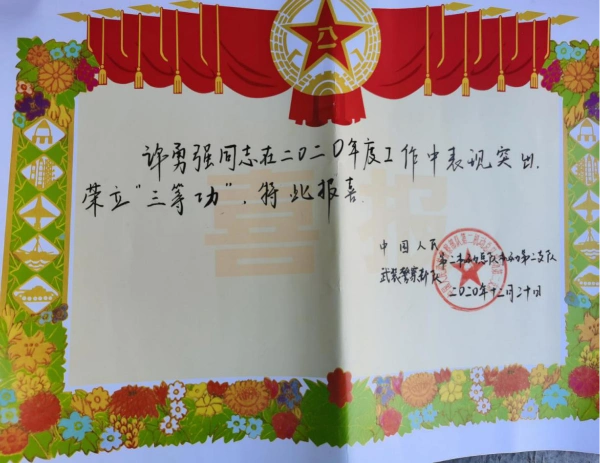 八一
许勇强同志在二〇二〇年度工作中表现突出,
荣立“三等功”,特此报喜
喜报
中国人民
武装警察部队
第二机动总队机动第二支队
二〇二〇年十二月二十日